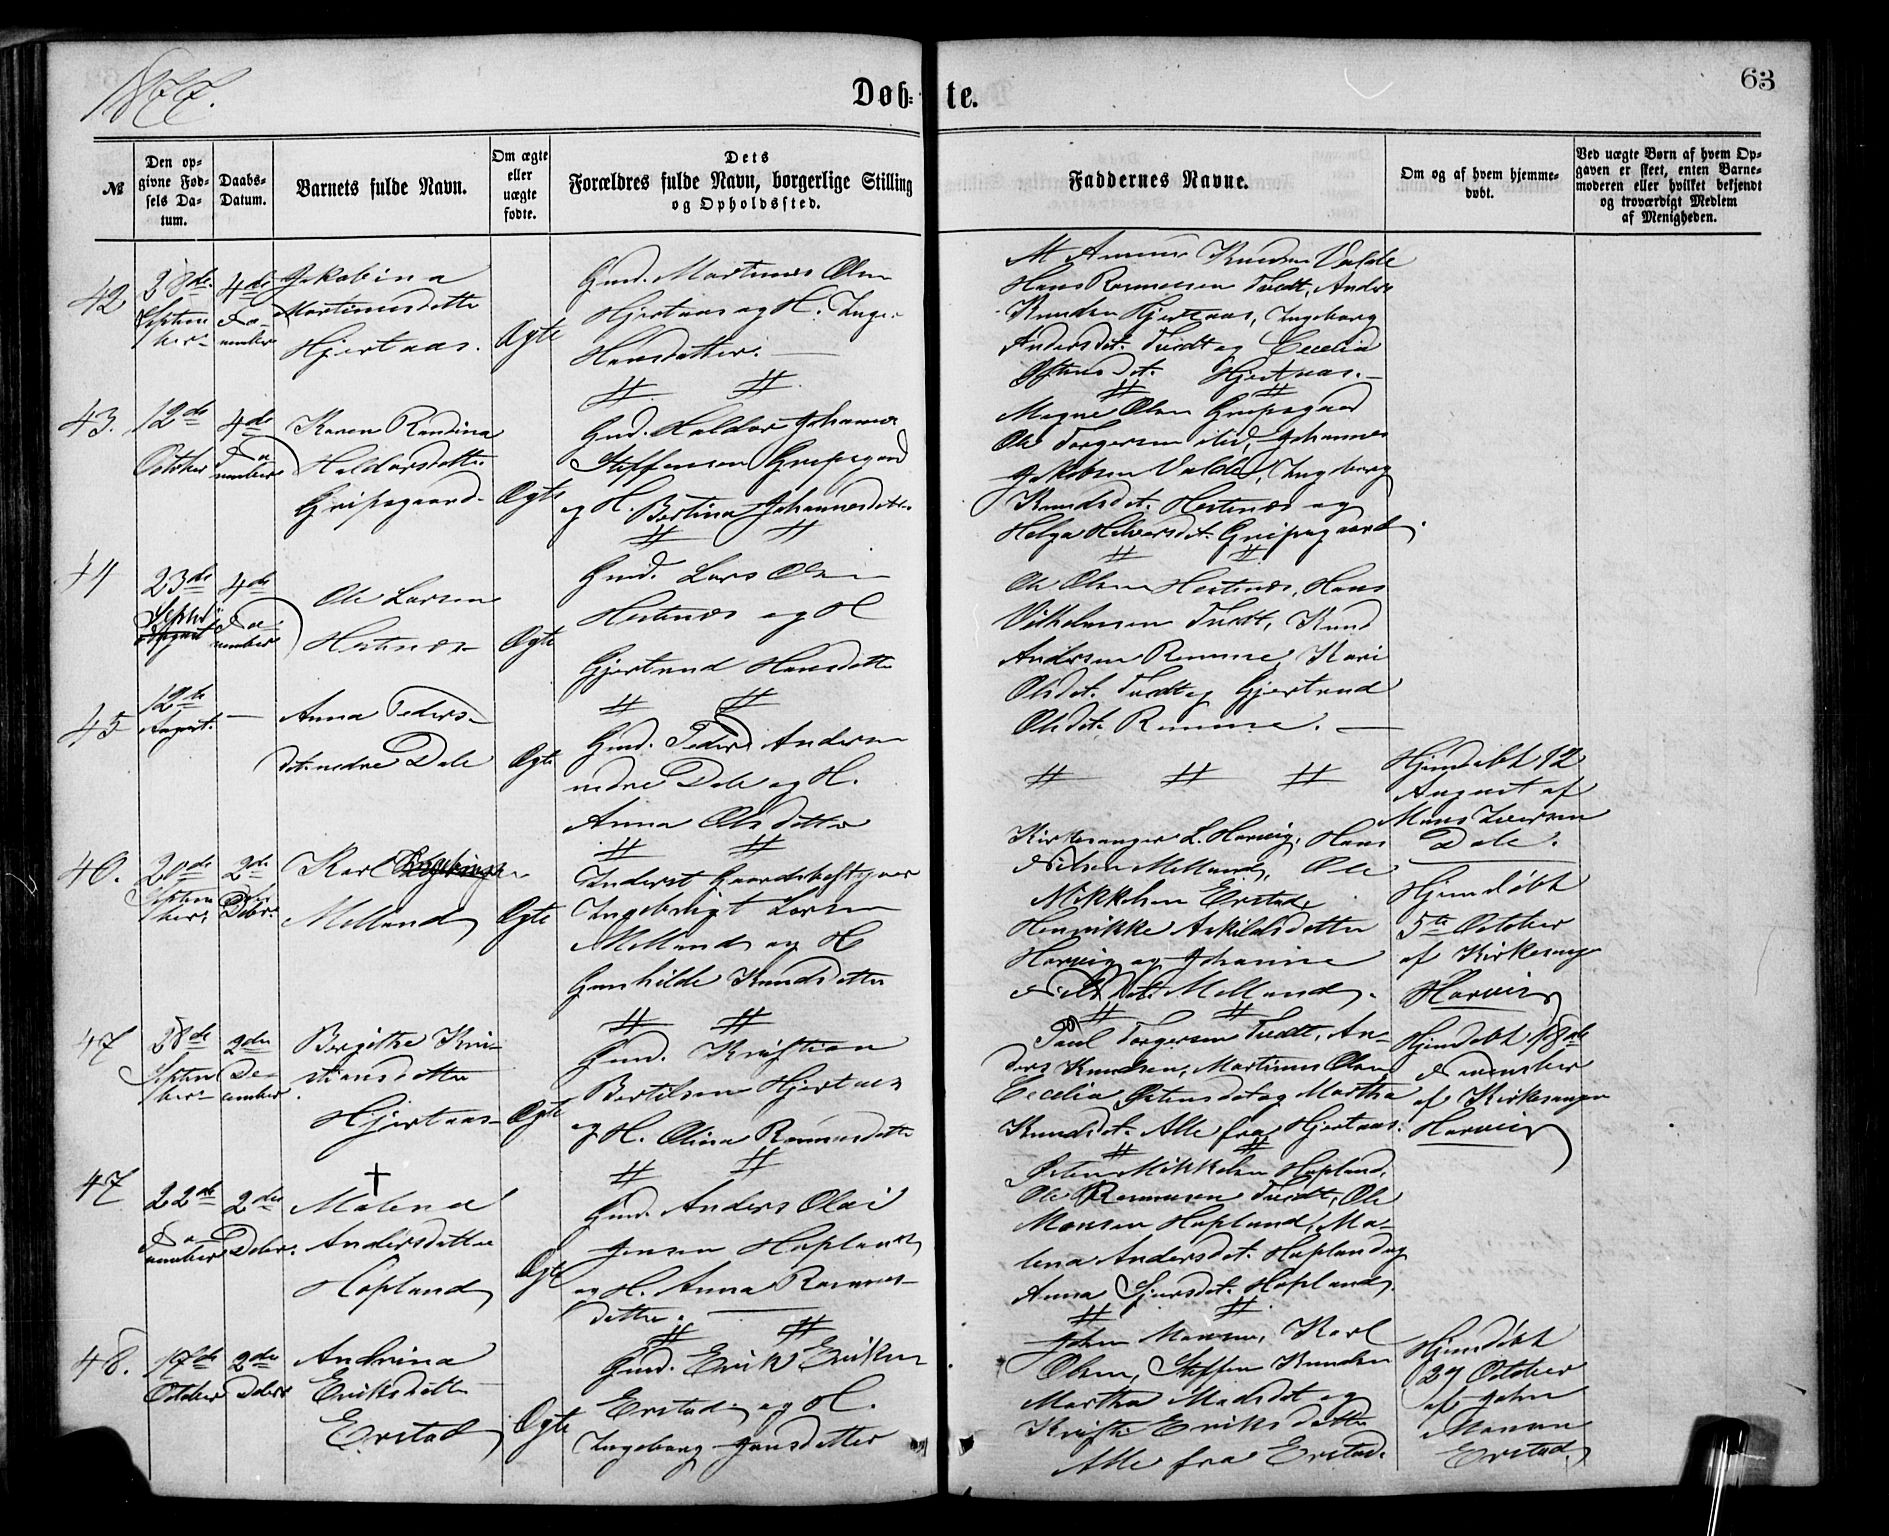 1877.
Døb-te.
63
№
Den op-
givne Fød-
sels Da-
tum.
Daabs-
Datum.
Barnets fulde Navn.
Om ægte
eller
uægte
fødte.
Dets
Forældres fulde Navn, borgerlige Stilling
og Opholdssted.
Faddernes Navne.
Om og af hvem hjemme-
døbt.
Ved uægte Børn af hvem Op-
gaven er skeet, enten Barne-
moderen eller hvilket bekjendt
og troværdigt Medlem
af Menigheden.
42
28de
Septem
ber
4de
No-
vember
Jakobina
Martinusdatter
Hjertaas.
Ægte
Gmd. Martinus Olsen
Hjertaas og H. Inger
Hansdatter.
Knudsen
Hans Rasmussen Tvedt, Anders
Knudsen Hjertaas, Ingeborg
Andersdat. Tvedt og Cecelia
Østensdat. Hjertaas.
43.
12de
October
4de
No
vember
Karen Randina
Haldorsdatter
Gripsgaard
Ægte
Gmd. Haldor Johannes
Steffensen Gripsgaard
og H. Bertina Johannesdatter
Magne Olsen Gripsgaard
Ole Torgersen ibid, Johannes
Jakobsen Valde, Ingeborg
Knudsdat. Hestenæs og
Helga Halvorsdat. Gripsgaard.
44
23de
Septbr
August
4de
No-
vember
Ole Larsen
Hestenæs
Ægte
Gmd. Lars Olsen
Hestenæs og H
Gjertrud Hansdatter
Ole Olsen Hestenæs, Hans
Vilhelmsen Tvedt, Knud
Andersen Remme, Kari
Olsdat. Tvedt og Gjertrud
Olsdat. Remme.
45
12te
August.
Anna Peders-
dat. nedre Dale
Ægte
Gmd. Peder Andersen
nedre Dale og H.
Anna Olsdatter
Hjemdøbt 12
August af
Mons Iversen
Dale.
46.
20de
Septem
ber.
2den
Dcbr.
Karl
Melland
Ægte
Inderst Gaardsbestyrer
Ingebrigt Larsen
Melland og H
Gunhilde Knudsdatter
Kirkesanger L. Hærvig, Hans
Nilsen Melland, Ole
Mikkelsen Erstad,
Henrikke Askildsdatter
Hærvig og Johanne
Nilsdat. Melland.
Hjemdøbt
5te October
af Kirkesanger
Hærvig
47
28de
Septem
ber
2den
De-
cember
Bergithe Kri-
stiansdatter
Hjertaas
Ægte
Gmd. Kristian
Bertilsen Hjertaas
og H. Olina Rasmusdatter
Paul Torgersen Tvedt, An-
ders Knudsen, Martinus Olsen
Cecelia Østensdat og Martha
Knudsdat. Alle fra Hjertaas.
Hjemdøbt 18de
November
af Kirkesanger
Hærvig
47
22de
No
vember
2den
Dcbr.
†
Malena
Andersdatter
Hopland
Ægte
Gmd. Anders Olai
Jensen Hopland
og H. Anna Rasmus-
datter.
Østen Mikkelsen Hopland,
Ole Rasmussen Tvedt, Ole
Monsen Hopland, Ma-
lena Andersdat. Hopland og
Anna Sjursdat. Hopland.
48.
17de
October
2den
Dcbr
Andrina
Eriksdatter
Erstad
Ægte
Gmd. Erik Eriksen
Erstad og H.
Ingeborg Jonsdatter
John Monsen, Karl
Olsen, Steffen Knudsen
Martha Madsdat og
Eriksdatter
Alle fra Erstad.
Hjemdøbt
27 October
af John
Monsen
Erstad.